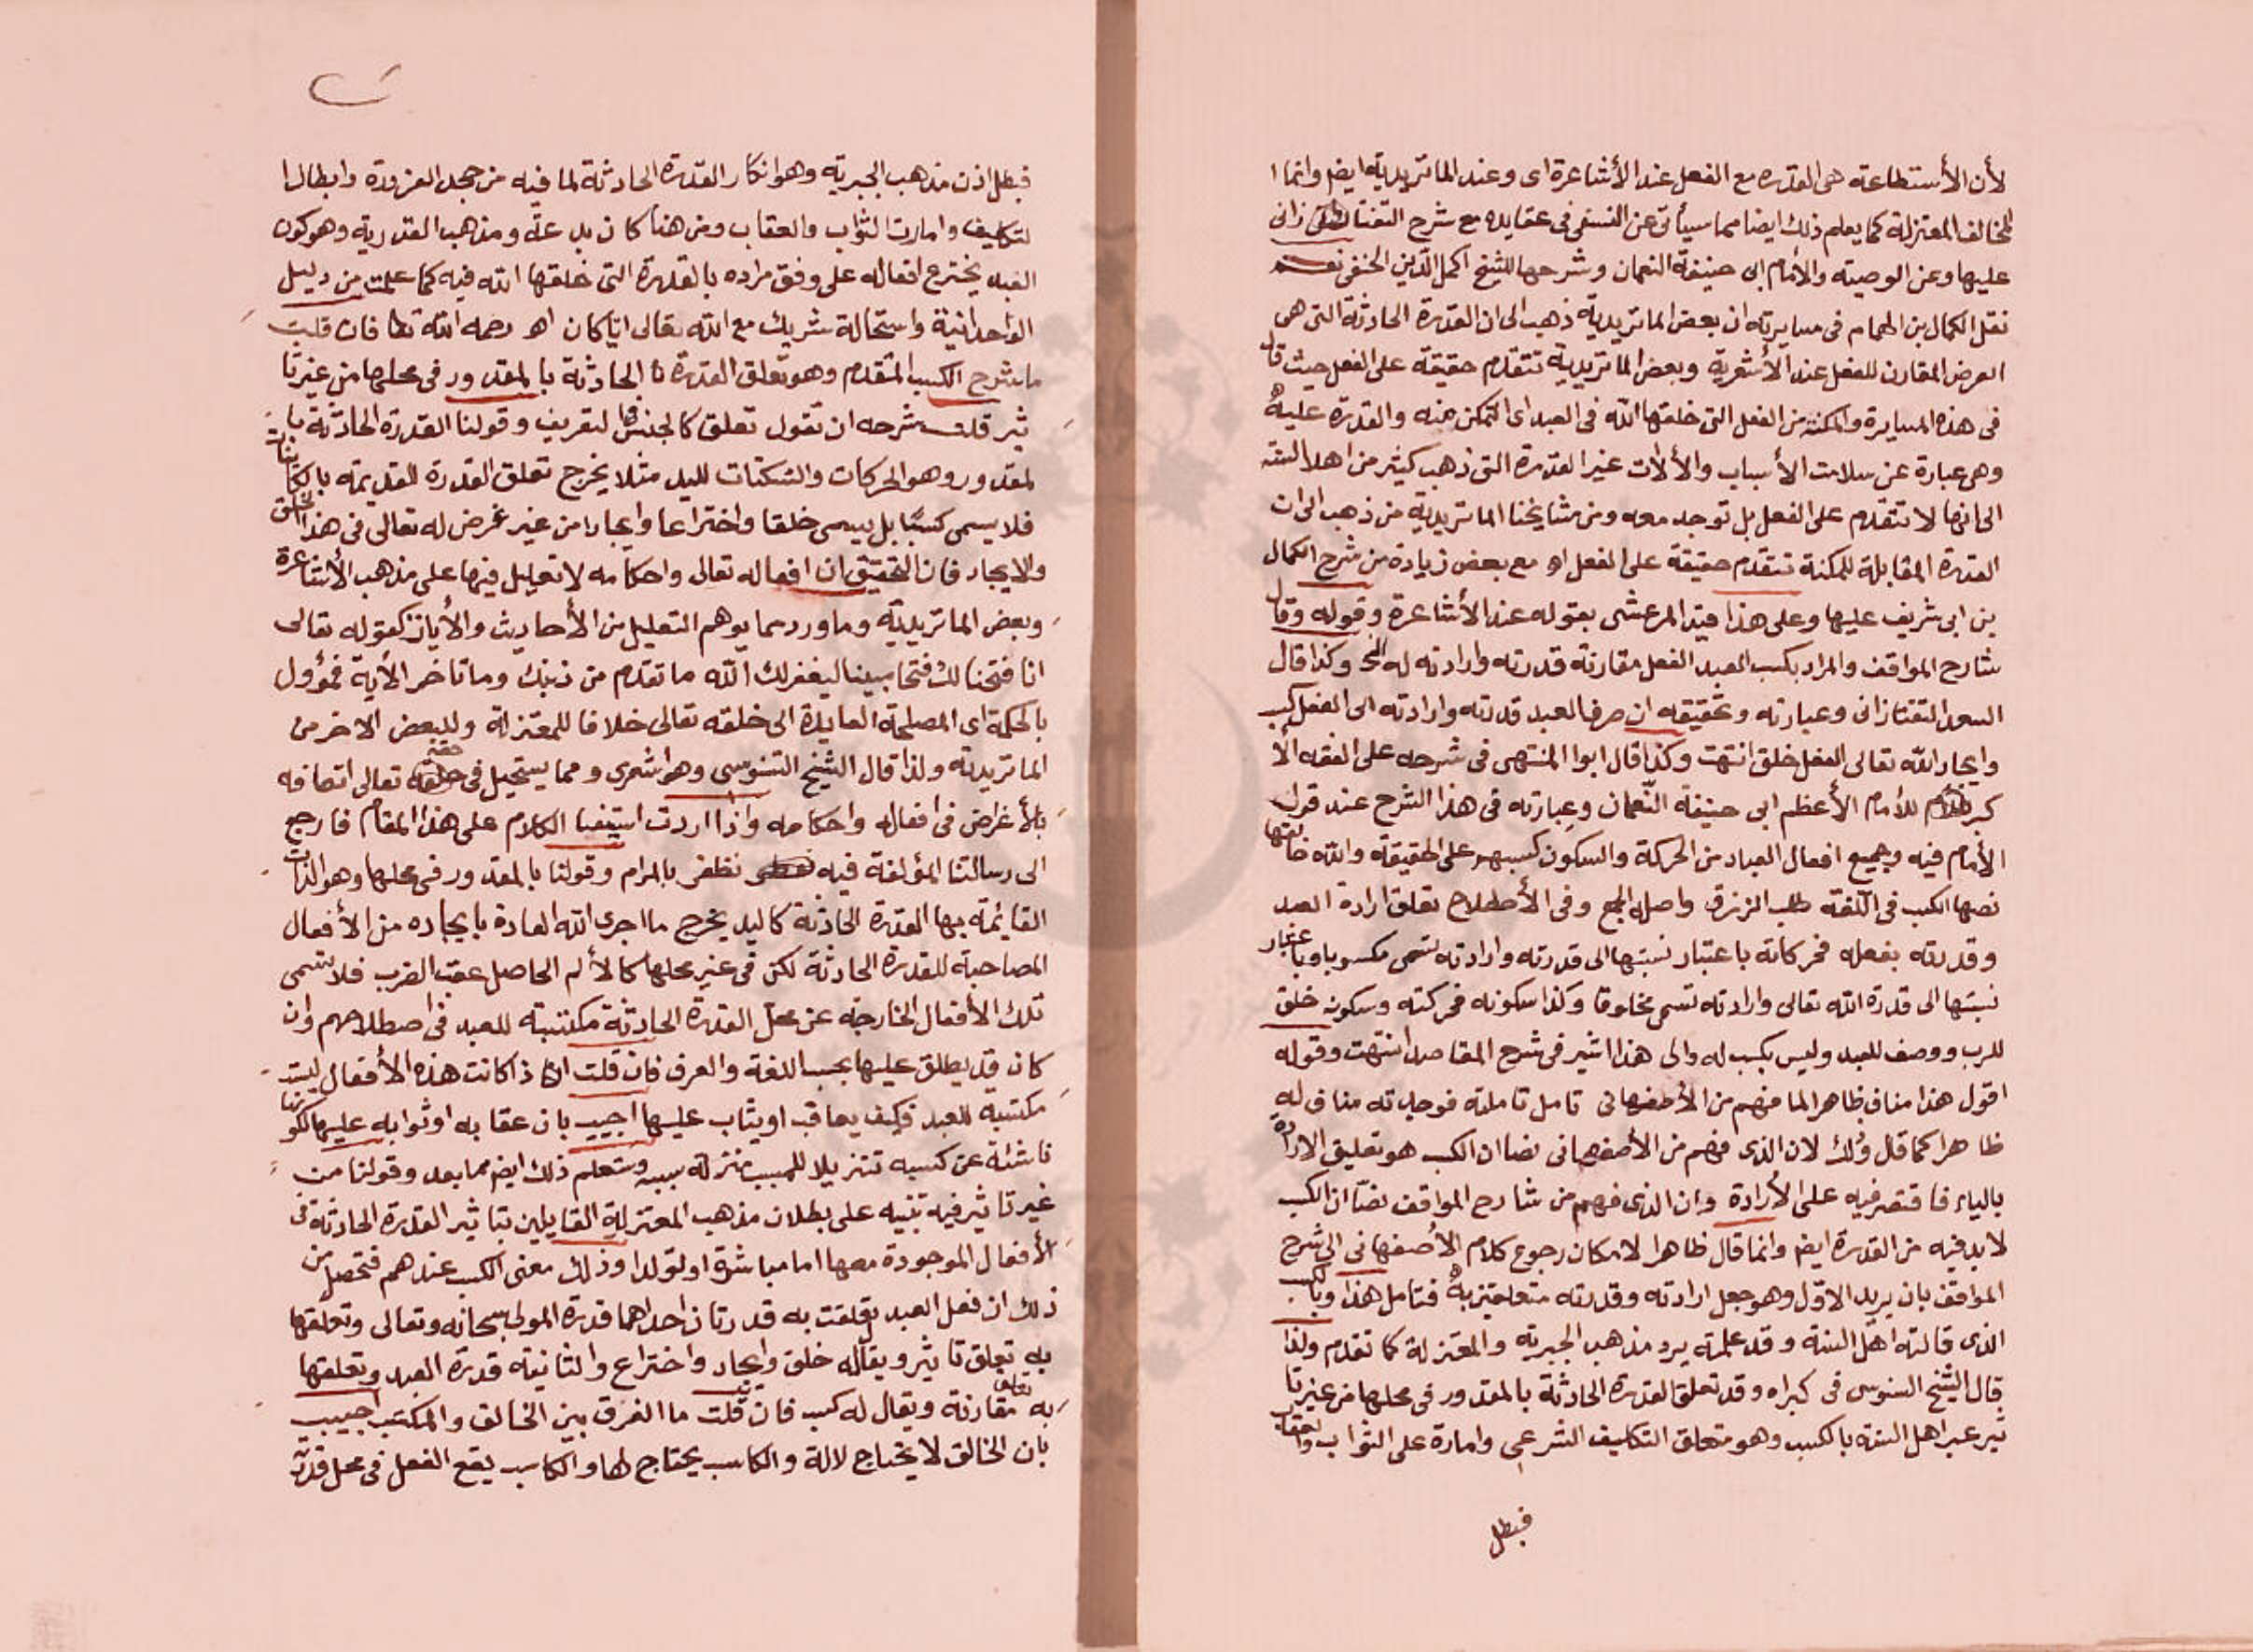 لأن الأستطاعة هى القدرة مع الفعل عند الأشاعرة اى وعند الماتريدية ايض وانما ا
لمخالف المعتزلة كما يعلم ذلك ايضا مما سيأتى عن النسفى فى عقايده مع شرح التفتازانى
عليها وعن الوصية والأمام ابى حنيفة النعمان وشرحها للشيخ اكمل الدين الحنفى نعم
نقل الكمال بن الهمام فى مسايرته ان بعض الماتريدية ذهب الى ان القدرة الحادثة التى هى
العرض المقارن للفعل عند الأشعرية وبعض الماتريدية تتقدم حقيقة على الفعل حيث قال
فى هذه المسايرة والمكنة من الفعل التى خلقها الله فى العبد اى التمكن منه والقدرة عليه
وهى عبارة عن سلامت الأسباب والألات غير القدرة التى ذهب كثير من اهل السنة
الى انها لا تتقدم على الفعل بل توجد معه ومن مشايخنا الماتريدية من ذهب الى ان
القدرة المقابلة للمكنة تتقدم حقيقة على الفعل اه مع بعض زيادة من شرح الكمال
بن ابى شريف عليها وعلى هذا قيد المرعشى بقوله عند الأشاعرة وقوله وقال
شارح المواقف والمراد بكسب العبد الفعل مقارنة قدرته وارادته له الخ وكذا قال
السعد التفتازانى وعبارته وتحقيقه ان صرف العبد قدرته وارادته الى الفعل كسب
وايجاد الله تعالى الفعل خلق انتهت وكذا قال ابوا المنتهى فى شرحه على الفقه الأ
كبر للأمام الأعظم ابى حنيفة النعمان وعبارته فى هذا الشرح عند قول
الأمام فيه وجميع افعال العباد من الحركة والسكون كسبهم على الحقيقة والله خالقها
نصها الكسب فى اللغة طلب الرزق واصله الجمع وفى الأصطلاح تعلق ارادة العبد
وقدرته بفعله فحركاته باعتبار نسبتها الى قدرته وارادته تسمى مكسوبا وباعتبار
نسبتها الى قدرة الله تعالى وارادته تسمى مخلوقا وكذا سكونه فحركته وسكونه خلق
للرب ووصف للعبد وليس بكسب له والى هذا اشير فى شرح المقاصد انتهت وقوله
اقول هذا مناف ظاهرا لما فهم من الأصفهانى تامل تاملته فوجدته مناف له
ظاهرا كما قال وذلك لان الذى فهم من الأصفهانى نصا ان الكسب هو تعليق الارادة
بالياء فاقتصر فيه على الأرادة وان الذى فهم من شارح المواقف نصا ان الكسب
لا بد فيه من القدرة ايض وانما قال ظاهرا لامكان رجوع كلام الأصفهانى الى شرح
المواقف بان يريد الاول وهو جعل ارادته وقدرته متعلقتين به فتامل هذا وبالكسب
الذى قالته اهل السنة وقد علمته يرد مذهب الجبرية والمعتزلة كما تقدم ولذا
قال الشيخ السنوسى فى كبراه وقد تعلق القدرة الحادثة بالمقدور فى محلها من غير تا
ثير عبر اهل السنة بالكسب وهو متعلق التكليف الشرعى وامارة على الثواب والعقاب
فبطل
فبطل اذن مذهب الجبرية وهو انكار القدرة الحادثة لما فيه من جحد الضرورة وابطال ا
لتكليف وامارت الثواب والعقاب ومن هنا كان بدعة ومذهب القدرية وهو كون
العبد يخترع افعاله على وفق مراده بالقدرة التى خلقها الله فيه كما علمت من دليل
الواحدانية واستحالة شريك مع الله تعالى ايا كان اه رحمه الله تعا فان قلت
ما شرح الكسب المتقدم وهو تعلق القدرة الحادثة بالمقدور فى محلها من غير تا
ثير قلت شرحه ان تقول تعلق كالجنس فى التعريف وقولنا القدرة الحادثة با
لمقدور وهو الحركات والسكنات لليد مثلا يخرج تعلق القدرة القديمة بالكائنات
فلا يسمى كسبا بل يسمى خلقا واختراعا وايجادا من غير غرض له تعالى فى هذا الخلق
والايجاد فان التحقيق ان افعاله تعالى واحكامه لا تعليل فيها على مذهب الأشاعرة
وبعض الماتريدية وما ورد مما يوهم التعليل من الأحاديث والأيات كقوله تعالى
انا فتحنا لك فتحا مبينا ليغفر لك الله ما تقدم من ذنبك وما تاخر الأية فمؤول
بالحكمة اى المصلحة العايدة الى خلقه تعالى خلافا للمعتزلة ولبعض الاخر من
الماتريدية ولذا قال الشيخ السنوسى وهو اشعرى ومما يستحيل فى حقه تعالى اتصافه
بالأغراض فى افعاله واحكامه واذا اردت استيفا الكلام على هذا المقام فارجع
الى رسالتنا المؤلفة فيه تظفر بالمرام وقولنا بالمقدور فى محلها وهو الذات
القائمة بها القدرة الحادثة كاليد يخرج ما اجرى الله العادة بايجاده من الأفعال
المصاحبة للقدرة الحادثة لكن فى غير محلها كالألم الحاصل عقب الضرب فلا تسمى
تلك الأفعال الخارجة عن محل القدرة الحادثة مكتسبة للعبد فى اصطلاحهم وان
كان قد يطلق عليها بحسب اللغة والعرف فان قلت اذا كانت هذه الأفعال ليست
مكتسبة للعبد فكيف يعاقب او يثاب عليها اجيب بان عقابه او ثوابه عليها لكونها
ناشئة عن كسبه تنزيلا للمسبب منزلة سببه وستعلم ذلك ايض مما بعد وقولنا من
غير تاثير فيه تنبيه على بطلان مذهب المعتزلة القايلين بتاثير القدرة الحادثة فى
الأفعال الموجودة معها اما مباشرة او تولدا وذلك معنى الكسب عندهم فتحصل من
ذلك ان فعل العبد تعلقت به قدرتان احداهما قدرة المولى سبحانه وتعالى وتعلقها
به تعلق تاثير ويقال له خلق وايجاد واختراع والثانية قدرة العبد وتعلقها
به تعلق مقارنة ويقال له كسب فان قلت ما الفرق بين الخالق والمكتسب اجيب
بان الخالق لا يحتاج لالة والكاسب يحتاج لها والكاسب يقع الفعل فى محل قدرته